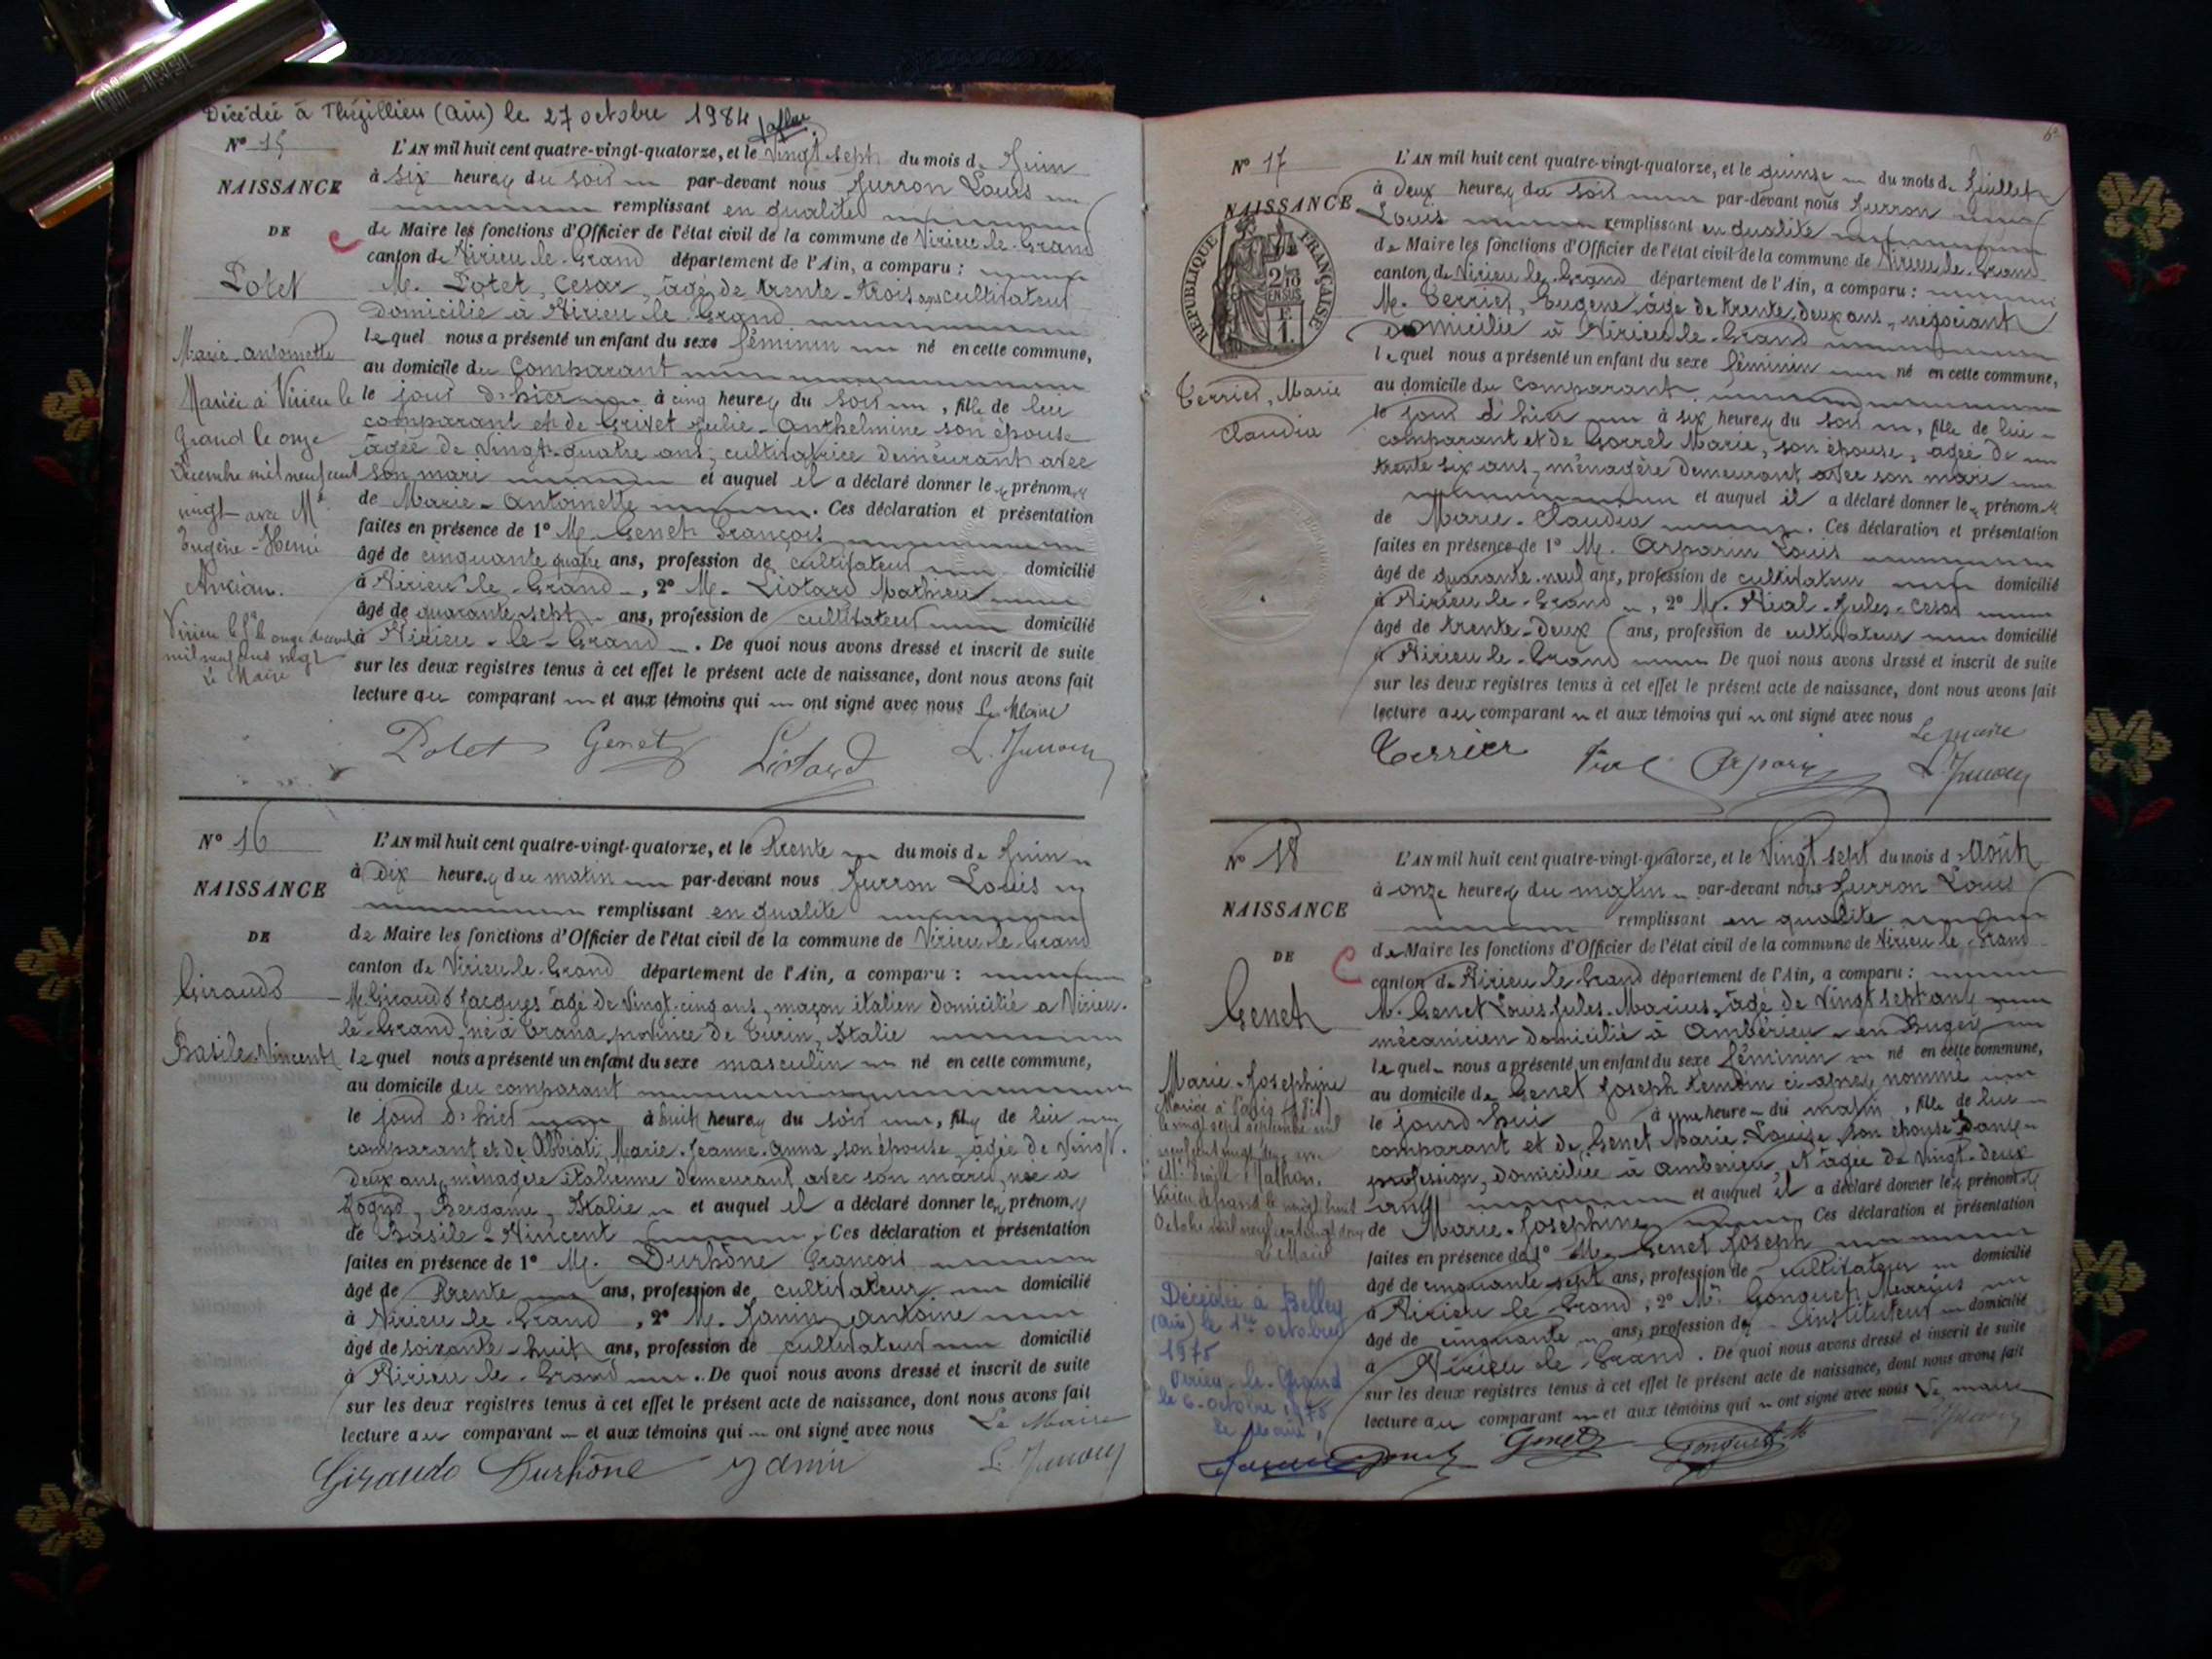 Décédée à Thézillieu (Ain) le 27 octobre 1984
N° 15
NAISSANCE
DE
Potet
Marie-Antoinette
Mariée à Virieu le
Grand le onze
Décembre mil neuf cent
vingt avec M.
Eugène-Henri
Virieu le Gd le onze décembre
mil neuf cent vingt
Le Maire
L'AN mil huit cent quatre-vingt-quatorze, et le Vingt sept du mois de Juin
à six heures du soir par-devant nous Jurron Louis
remplissant en qualité
de Maire les fonctions d'Officier de l'état civil de la commune de Virieu-le-Grand
canton de Virieu-le-Grand département de l'Ain, a comparu :
M. Potet, Cesar, âgé de trente-trois ans cultivateur
domicilié à Virieu-le-Grand
lequel nous a présenté un enfant du sexe féminin né en cette commune,
au domicile du Comparant
le jour d'hier à cinq heures du soir, fille de lui
comparant et de Grivet Julie-Anthelmine son épouse
âgée de vingt-quatre ans, cultivatrice demeurant avec
son mari et auquel il a déclaré donner les prénoms
de Marie-Antoinette. Ces déclaration et présentation
faites en présence de 1° M. Genet François
âgé de cinquante quatre ans, profession de cultivateur domicilié
à Virieu-le-Grand, 2° M. Liotard Mathieu
âgé de quarante-sept ans, profession de cultivateur domicilié
à Virieu-le-Grand. De quoi nous avons dressé et inscrit de suite
sur les deux registres tenus à cet effet le présent acte de naissance, dont nous avons fait
lecture au comparant et aux témoins qui ont signé avec nous Le Maire
Potet Genet Liotard L. Jurron
N° 16
NAISSANCE
DE
Giraudo
Basile-Vincent
L'AN mil huit cent quatre-vingt-quatorze, et le Trente du mois de Juin
à dix heures du matin par-devant nous Jurron Louis
remplissant en qualité
de Maire les fonctions d'Officier de l'état civil de la commune de Virieu-le-Grand
canton de Virieu-le-Grand département de l'Ain, a comparu :
M. Giraudo Jacques âgé de vingt-cinq ans, maçon italien domicilié à Virieu-
le-Grand, né à Trana, province de Turin, Italie
lequel nous a présenté un enfant du sexe masculin né en cette commune,
au domicile du comparant
le jour d'hier à huit heures du soir, fils de lui
comparant et de Abbiati, Marie-Jeanne-Anna, son épouse, âgée de vingt-
deux ans, ménagère italienne demeurant avec son mari, née à
Bergame, Italie et auquel il a déclaré donner les prénoms
de Basile-Vincent. Ces déclaration et présentation
faites en présence de 1° M. Durhône François
âgé de Trente ans, profession de cultivateur domicilié
à Virieu-le-Grand, 2° M. Janin Antoine
âgé de soixante-huit ans, profession de cultivateur domicilié
à Virieu-le-Grand. De quoi nous avons dressé et inscrit de suite
sur les deux registres tenus à cet effet le présent acte de naissance, dont nous avons fait
lecture au comparant et aux témoins qui ont signé avec nous Le Maire
Giraudo Durhône Janin L. Jurron
N° 17
NAISSANCE
REPUBLIQUE FRANÇAISE
2/10
EN SUS
Terrier, Marie
Claudia
L'AN mil huit cent quatre-vingt-quatorze, et le quinze du mois de Juillet
à deux heures du soir par-devant nous Jurron
Louis remplissant en qualité
de Maire les fonctions d'Officier de l'état civil de la commune de Virieu-le-Grand
canton de Virieu-le-Grand département de l'Ain, a comparu :
M. Terrier, Eugène, âgé de trente deux ans, négociant
domicilié à Virieu-le-Grand
lequel nous a présenté un enfant du sexe féminin né en cette commune,
au domicile du Comparant
le jour d'hier à six heures du soir, fille de lui
comparant et de Gorrel Marie, son épouse, âgée de
trente six ans, ménagère demeurant avec son mari
et auquel il a déclaré donner les prénoms
de Marie-Claudia. Ces déclaration et présentation
faites en présence de 1° M. Arparin Louis
âgé de quarante-neuf ans, profession de cultivateur domicilié
à Virieu-le-Grand, 2° M. Vial Jules-Cesar
âgé de trente-deux ans, profession de cultivateur domicilié
à Virieu-le-Grand De quoi nous avons dressé et inscrit de suite
sur les deux registres tenus à cet effet le présent acte de naissance, dont nous avons fait
lecture au comparant et aux témoins qui ont signé avec nous
Le maire
Terrier Vial Arparin L. Jurron
N° 18
NAISSANCE
DE
Genet
Marie-Josephine
Mariée à
le vingt sept septembre mil
neuf cent vingt deux avec
M. Emile Mathon.
Virieu le Grand le vingt huit
Octobre mil neuf cent vingt deux
Le Maire
Décédée à Belley
(Ain) le 1er octobre
1975
Virieu-le-Grand
le 6 octobre 1975
Le Maire,
L'AN mil huit cent quatre-vingt-quatorze, et le Vingt sept du mois d'Août
à onze heures du matin par-devant nous Jurron Louis
remplissant en qualité
de Maire les fonctions d'Officier de l'état civil de la commune de Virieu-le-Grand
canton de Virieu-le-Grand département de l'Ain, a comparu :
M. Genet Louis-Jules-Marius, âgé de vingt sept ans
mécanicien domicilié à Ambérieu-en-Bugey
lequel nous a présenté un enfant du sexe féminin né en cette commune,
au domicile de Genet Joseph témoin ci-après nommé
le jourd'hui à une heure du matin, fille de lui
comparant et de Genet Marie-Louise, son épouse sans
profession, domiciliée à Ambérieu, et âgée de vingt-deux
ans et auquel il a déclaré donner les prénoms
de Marie-Josephine. Ces déclaration et présentation
faites en présence de 1° M. Genet Joseph
âgé de cinquante-sept ans, profession de cultivateur domicilié
à Virieu-le-Grand, 2° M. Gonguet Marius
âgé de cinquante ans, profession d'instituteur domicilié
à Virieu-le-Grand. De quoi nous avons dressé et inscrit de suite
sur les deux registres tenus à cet effet le présent acte de naissance, dont nous avons fait
lecture au comparant et aux témoins qui ont signé avec nous Le maire
Genet Genet Gonguet L. Jurron